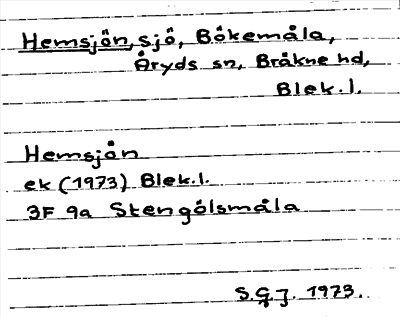 Hemsjön, sjö, Bökemåla,
Åryds sn, Bräkne hd,
Blek.l.
Hemsjön
ek (1973) Blek.l.
3F 9a Stengölsmåla
S.G.J. 1973.